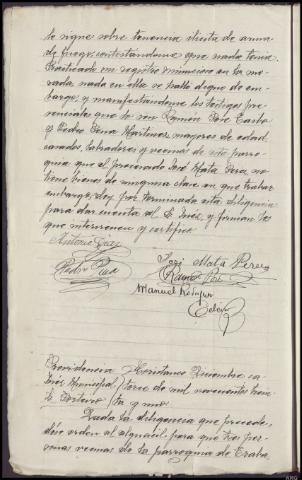 le sigue sobre tenencia ilicita de arma
de fuego, contestándome que nada tenia.
Practicado un registro minucioso en la mo-
rada, nada en ella se halló digno de em-
bargo, y manifestándome los testigos pre-
senciales que lo son Ramón Pose Castro
y Pedro Pena Martinez mayores de edad
casados, labradores y vecinos de esta parro-
quia que el procesado José Mata Perez, no
tiene bienes de ninguna clase en que trabar
embargo, doy por terminada esta diligencia
para dar cuenta al S. Juez, y firman los
que intervienen y certifico.
Antonio
José Mata Perez
Pedro Pena
Ramón Pose
Manuel
Providencia Coristanco Diciembre ca-
Juez Municipal torce de mil novecientos trein-
S. ta y uno.
Dada la diligencia que precede,
dése orden al alguacil, para que los per-
vecinos de la parroquia de